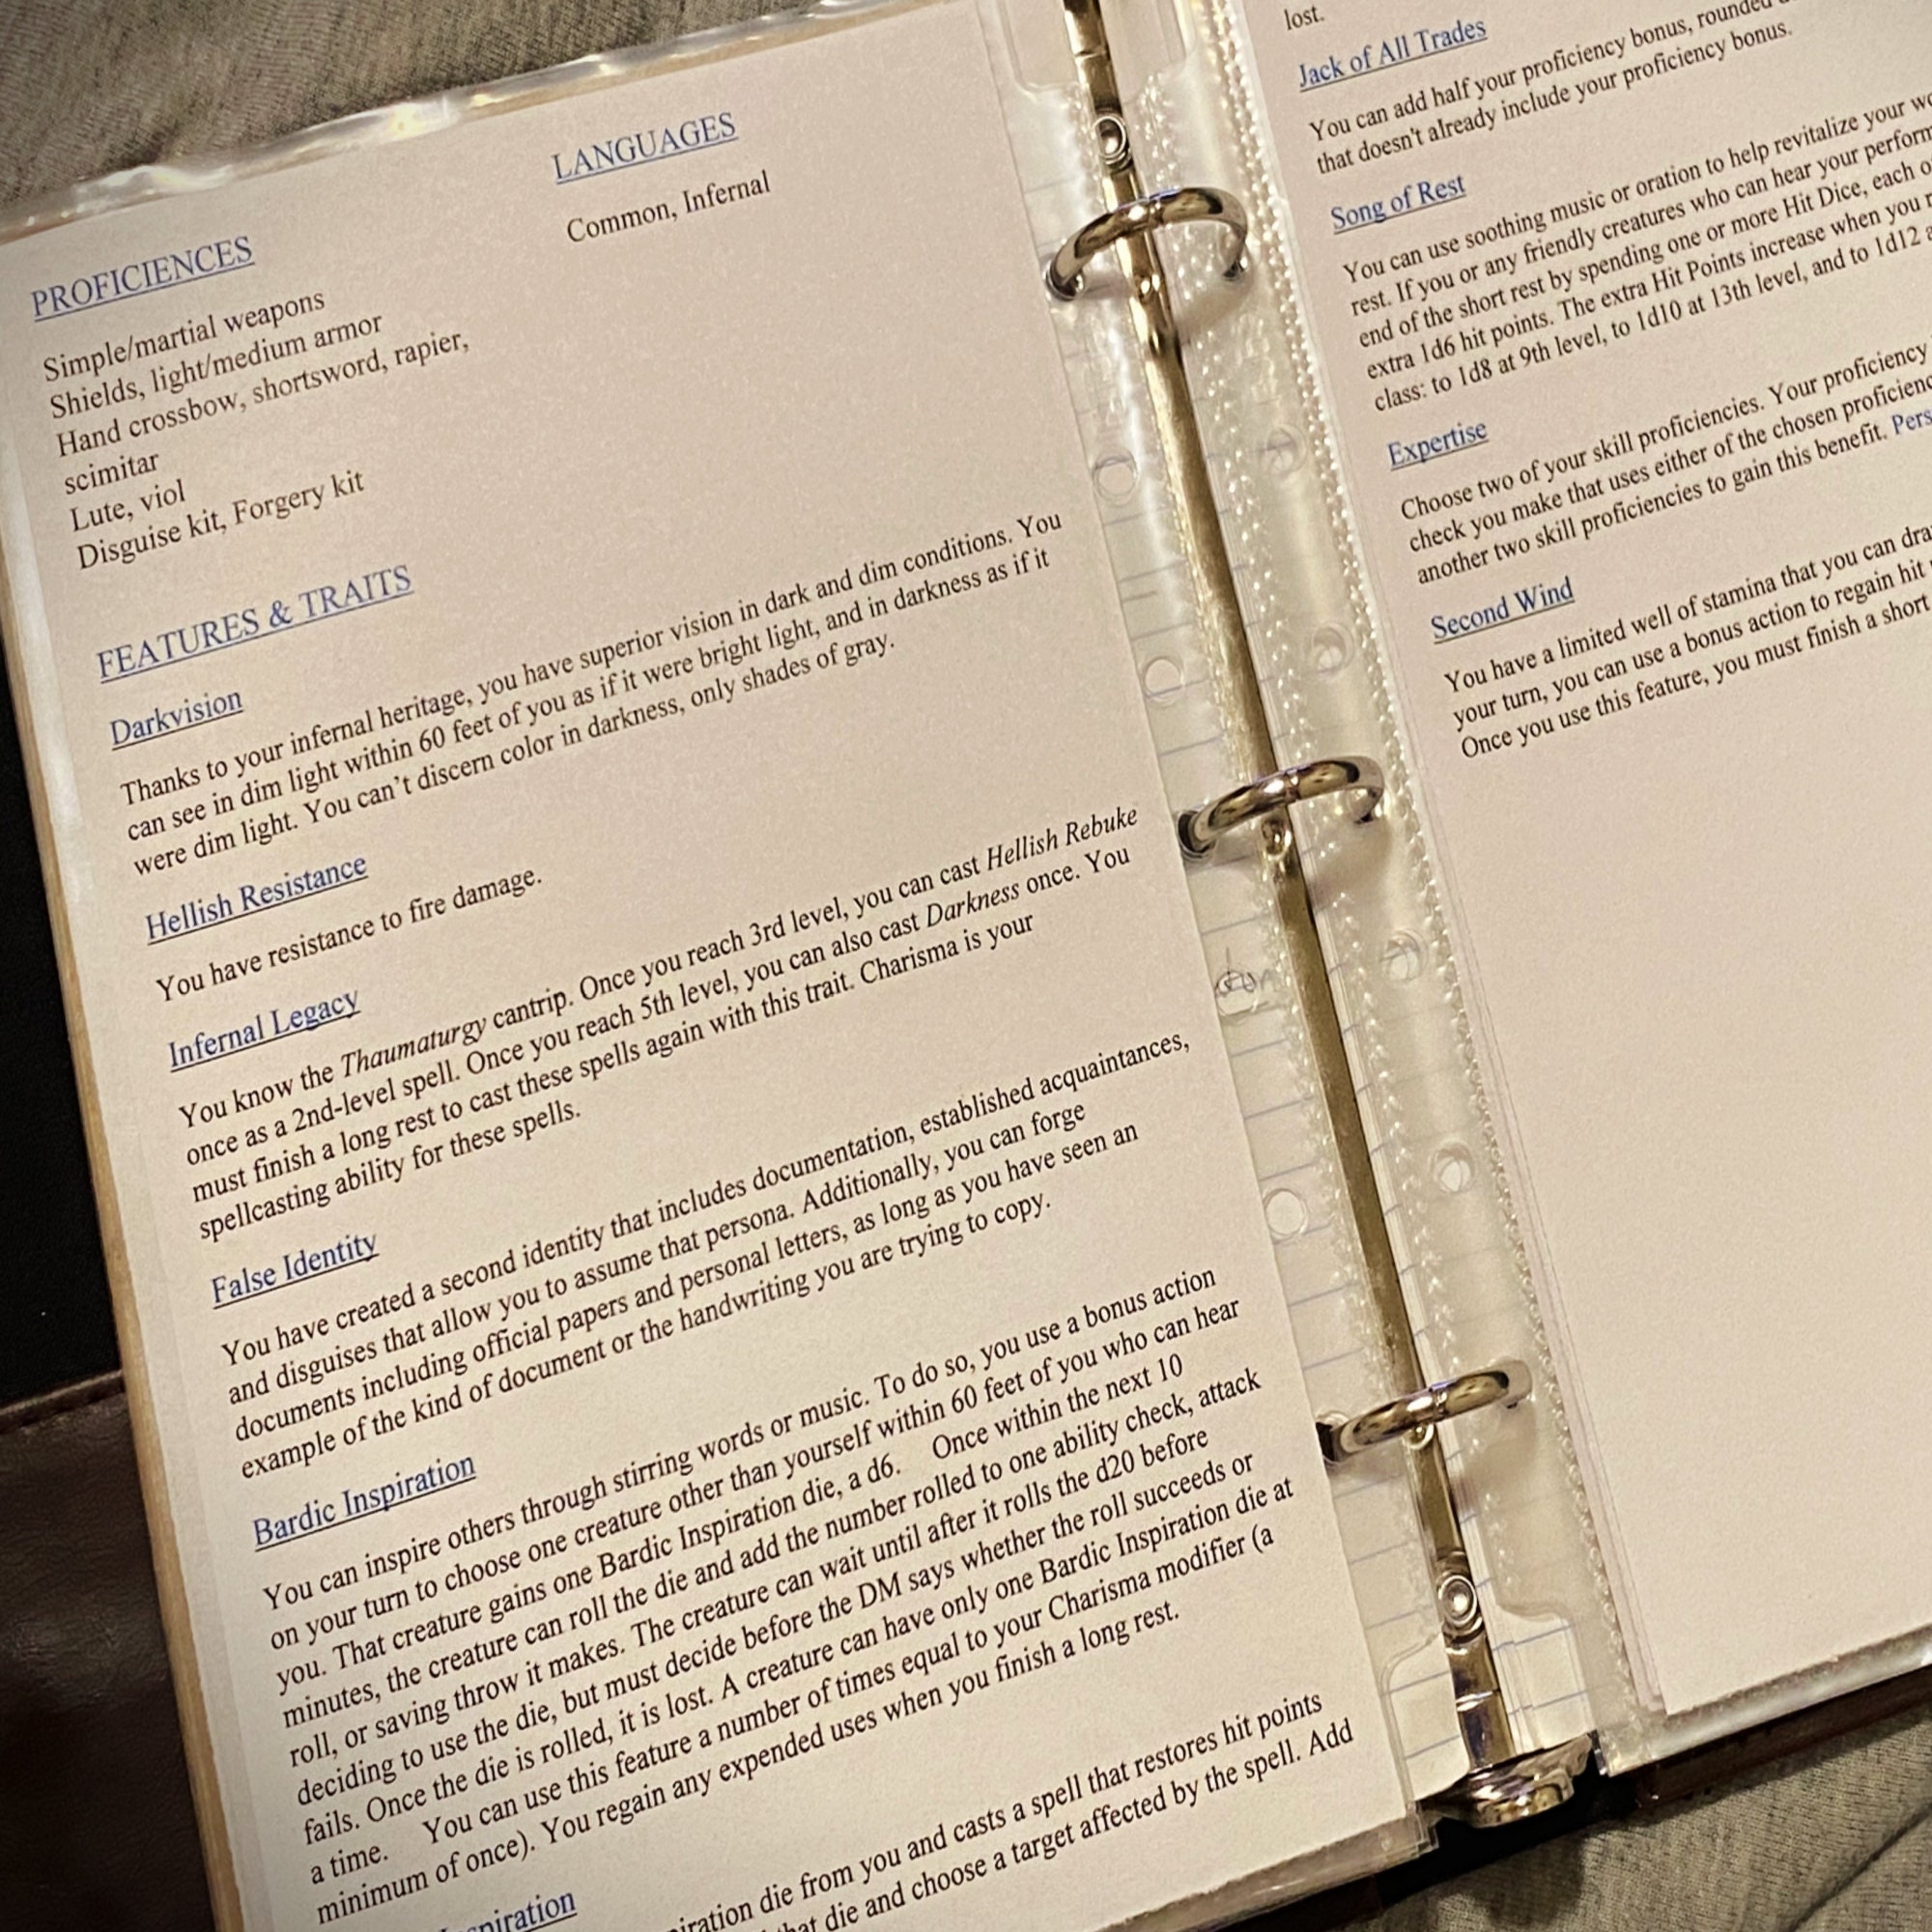 LANGUAGES
Common, Infernal
PROFICIENCES
Simple/martial weapons
Shields, light/medium armor
Hand crossbow, shortsword, rapier,
scimitar
Lute, viol
Disguise kit, Forgery kit
FEATURES & TRAITS
Darkvision
Thanks to your infernal heritage, you have superior vision in dark and dim conditions. You
can see in dim light within 60 feet of you as if it were bright light, and in darkness as if it
were dim light. You can’t discern color in darkness, only shades of gray.
Hellish Resistance
You have resistance to fire damage.
Infernal Legacy
You know the Thaumaturgy cantrip. Once you reach 3rd level, you can cast Hellish Rebuke
once as a 2nd-level spell. Once you reach 5th level, you can also cast Darkness once. You
must finish a long rest to cast these spells again with this trait. Charisma is your
spellcasting ability for these spells.
False Identity
You have created a second identity that includes documentation, established acquaintances,
and disguises that allow you to assume that persona. Additionally, you can forge
documents including official papers and personal letters, as long as you have seen an
example of the kind of document or the handwriting you are trying to copy.
Bardic Inspiration
You can inspire others through stirring words or music. To do so, you use a bonus action
on your turn to choose one creature other than yourself within 60 feet of you who can hear
you. That creature gains one Bardic Inspiration die, a d6. Once within the next 10
minutes, the creature can roll the die and add the number rolled to one ability check, attack
roll, or saving throw it makes. The creature can wait until after it rolls the d20 before
deciding to use the die, but must decide before the DM says whether the roll succeeds or
fails. Once the die is rolled, it is lost. A creature can have only one Bardic Inspiration die at
a time. You can use this feature a number of times equal to your Charisma modifier (a
minimum of once). You regain any expended uses when you finish a long rest.
spiration
piration die from you and casts a spell that restores hit points
that die and choose a target affected by the spell. Add
lost.
Jack of All Trades
You can add half your proficiency bonus, rounded
that doesn't already include your proficiency bonus.
Song of Rest
You can use soothing music or oration to help revitalize your
rest. If you or any friendly creatures who can hear your
end of the short rest by spending one or more Hit Dice, each
extra 1d6 hit points. The extra Hit Points increase when you
class: to 1d8 at 9th level, to 1d10 at 13th level, and to 1d12
Expertise
Choose two of your skill proficiencies. Your proficiency
check you make that uses either of the chosen
another two skill proficiencies to gain this benefit. Pers
Second Wind
You have a limited well of stamina that you can
your turn, you can use a bonus action to regain hit
Once you use this feature, you must finish a short